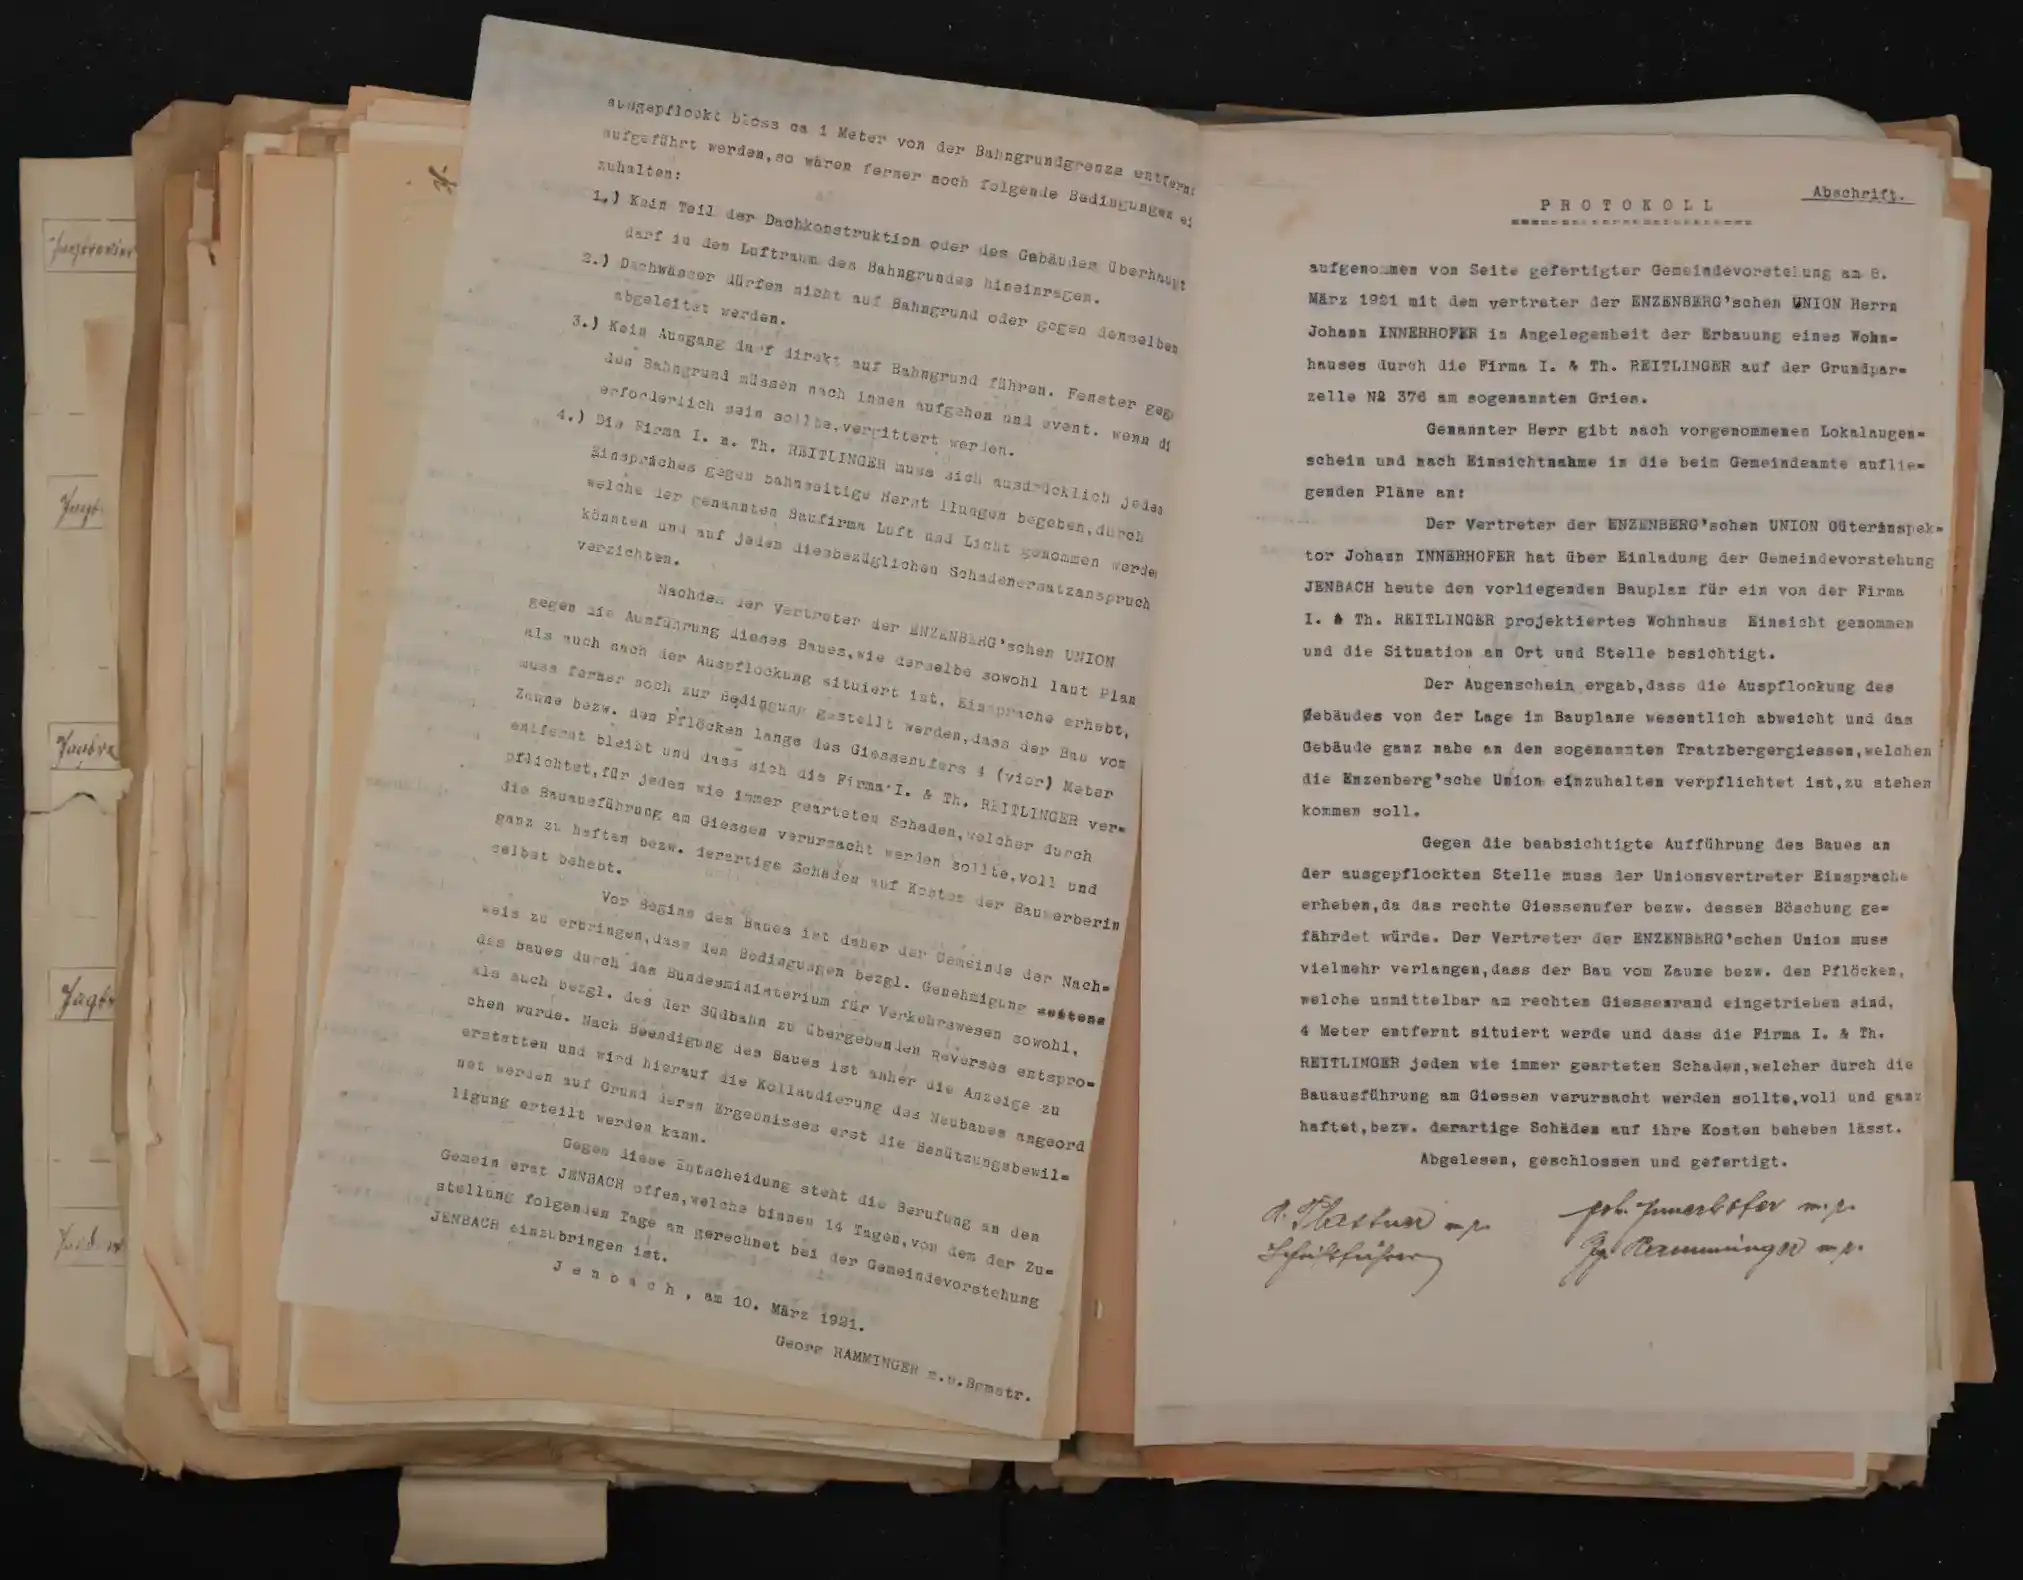 ausgepflockt bloss ca 1 Meter von der Bahngrundgrenze entfernt
aufgeführt werden,so wären ferner noch folgende Bedingungen ei
zuhalten:
1.) Kein Teil der Dachkonstruktion oder des Gebäudes überhaupt
darf in den Luftraum des Bahngrundes hineinragen.
2.) Dachwässer dürfen nicht auf Bahngrund oder gegen denselben
abgeleitet werden.
3.) Kein Ausgang darf direkt auf Bahngrund führen. Fenster geg
den Bahngrund müssen nach innen aufgehen und event. wenn di
erforderlich sein sollte,vergittert werden.
4.) Die Firma I. u. Th. REITLINGER muss sich ausdrücklich jedes
Einspruches gegen bahnseitige Herst llungen begeben,durch
welche der genannten Baufirma Luft und Licht genommen werde
könnten und auf jeden diesbezüglichen Schadenersatzanspruch
verzichten.
Nachdem der Vertreter der ENZENBERG'schen UNION
gegen die Ausführung dieses Baues,wie derselbe sowohl laut Plan
als auch nach der Auspflockung situiert ist, Einsprache erhebt,
muss ferner noch zur Bedingung gestellt werden,dass der Bau vom
Zaune bezw. den Pflöcken längs des Giessenufers 4 (vier) Meter
entfernt bleibt und dass sich die Firma I. & Th. REITLINGER ver=
pflichtet,für jeden wie immer gearteten Schaden,welcher durch
die Bauausführung am Giessen verursacht werden sollte,voll und
ganz zu haften bezw. derartige Schäden auf Kosten der Bauwerberin
selbst behebt.
Vor Beginn des Baues ist daher der Gemeinde der Nach=
weis zu erbringen,dass den Bedingungen bezgl. Genehmigung seitens
des baues durch das Bundesministerium für Verkehrswesen sowohl,
als auch bezgl. des der Südbahn zu übergebenden Reverses entspro=
chen wurde. Nach Beendigung des Baues ist anher die Anzeige zu
erstatten und wird hierauf die Kollaudierung des Neubaues angeord
net werden auf Grund deren Ergebnisses erst die Benützungsbewil=
ligung erteilt werden kann.
Gegen diese Entscheidung steht die Berufung an den
Gemein erat JENBACH offen,welche binnen 14 Tagen,von dem der Zu=
stellung folgenden Tage an gerechnet bei der Gemeindevorstehung
JENBACH einzubringen ist.
J e n b a c h , am 10. März 1921.
Georg RAMMINGER m.p.Bgmstr.
Abschrift.
P R O T O K O L L
aufgenommen von Seite gefertigter Gemeindevorstehung am 8.
März 1921 mit dem vertreter der ENZENBERG'schen UNION Herrn
Johann INNERHOFER in Angelegenheit der Erbauung eines Wohn=
hauses durch die Firma I. & Th. REITLINGER auf der Grundpar=
zelle No 376 am sogenannten Gries.
Genannter Herr gibt nach vorgenommenen Lokalaugen=
schein und nach Einsichtnahme in die beim Gemeindeamte auflie=
genden Pläne an:
Der Vertreter der ENZENBERG'schen UNION Güterinspek=
tor Johann INNERHOFER hat über Einladung der Gemeindevorstehung
JENBACH heute den vorliegenden Bauplan für ein von der Firma
I. & Th. REITLINGER projektiertes Wohnhaus Einsicht genommen
und die Situation an Ort und Stelle besichtigt.
Der Augenschein ergab,dass die Auspflockung des
Gebäudes von der Lage im Bauplane wesentlich abweicht und das
Gebäude ganz nahe an den sogenannten Tratzbergergiessen,welchen
die Enzenberg'sche Union einzuhalten verpflichtet ist,zu stehen
kommen soll.
Gegen die beabsichtigte Aufführung des Baues an
der ausgepflockten Stelle muss der Unionsvertreter Einsprache
erheben,da das rechte Giessenufer bezw. dessen Böschung ge=
fährdet würde. Der Vertreter der ENZENBERG'schen Union muss
vielmehr verlangen,dass der Bau vom Zaune bezw. den Pflöcken,
welche unmittelbar am rechten Giessenrand eingetrieben sind,
4 Meter entfernt situiert werde und dass die Firma I. & Th.
REITLINGER jeden wie immer gearteten Schaden,welcher durch die
Bauausführung am Giessen verursacht werden sollte,voll und ganz
haftet,bezw. derartige Schäden auf ihre Kosten beheben lässt.
Abgelesen, geschlossen und gefertigt.
Joh. Innerhofer m.p.
A. Plattner m.p.
Gg. Ramminger m.p.
Schriftführer